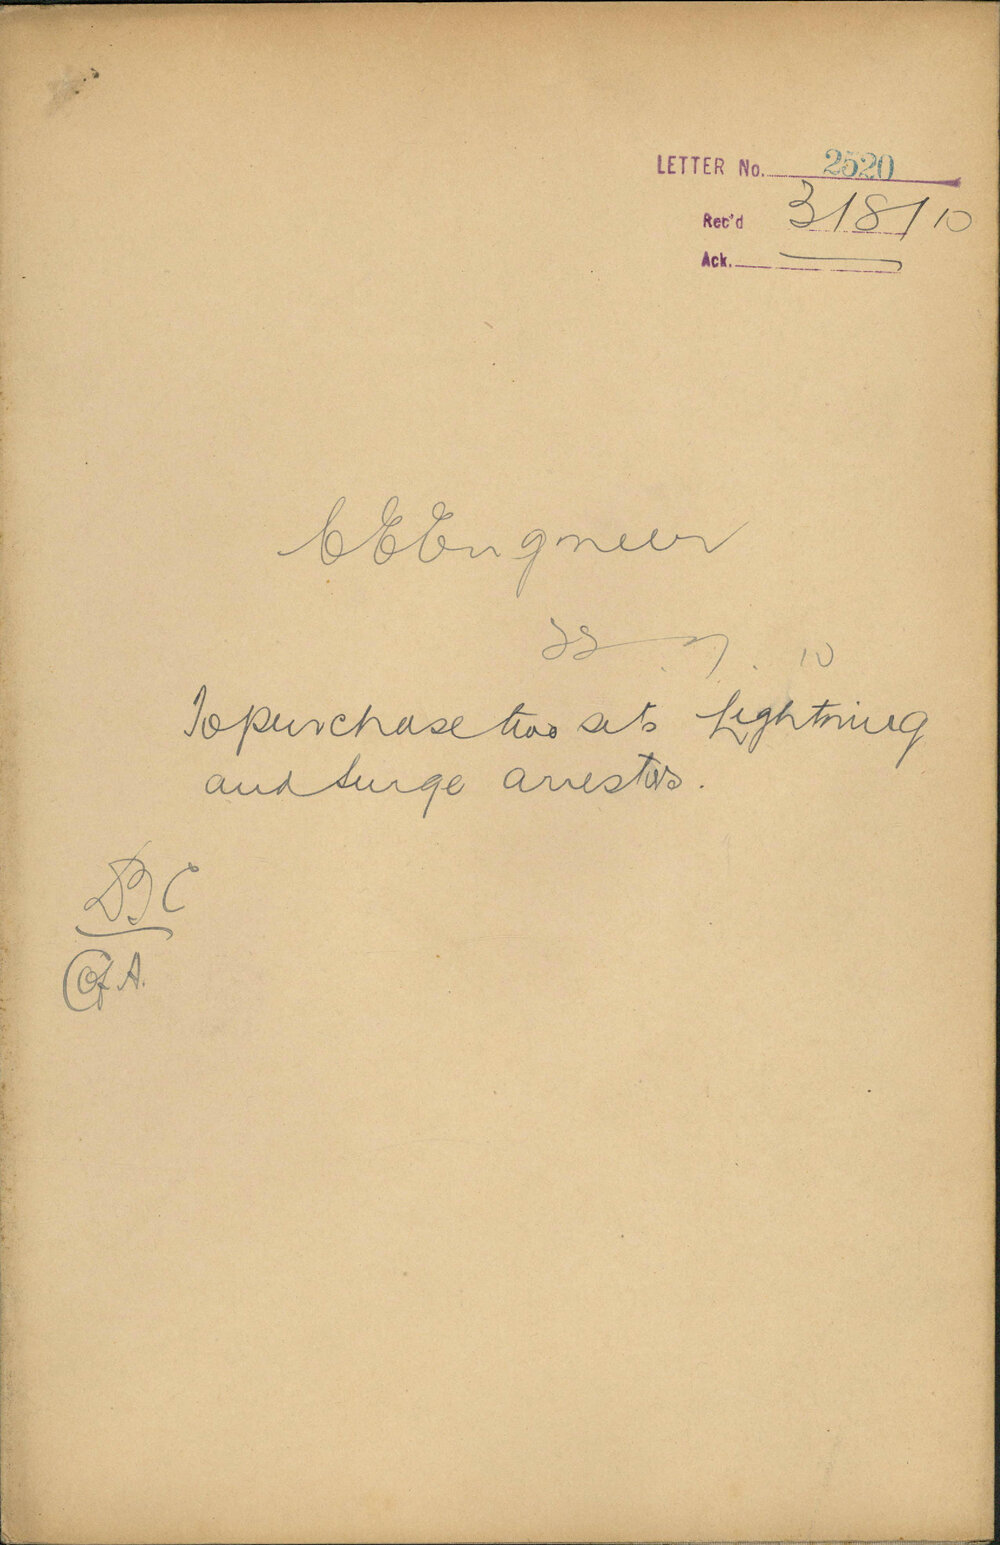 LETTER No. 2520
Rec'd 3/8/10
Ack.
C E Engineer
7. 10
To purchase two sets Lightning
and Surge arresters.
C
C of A.